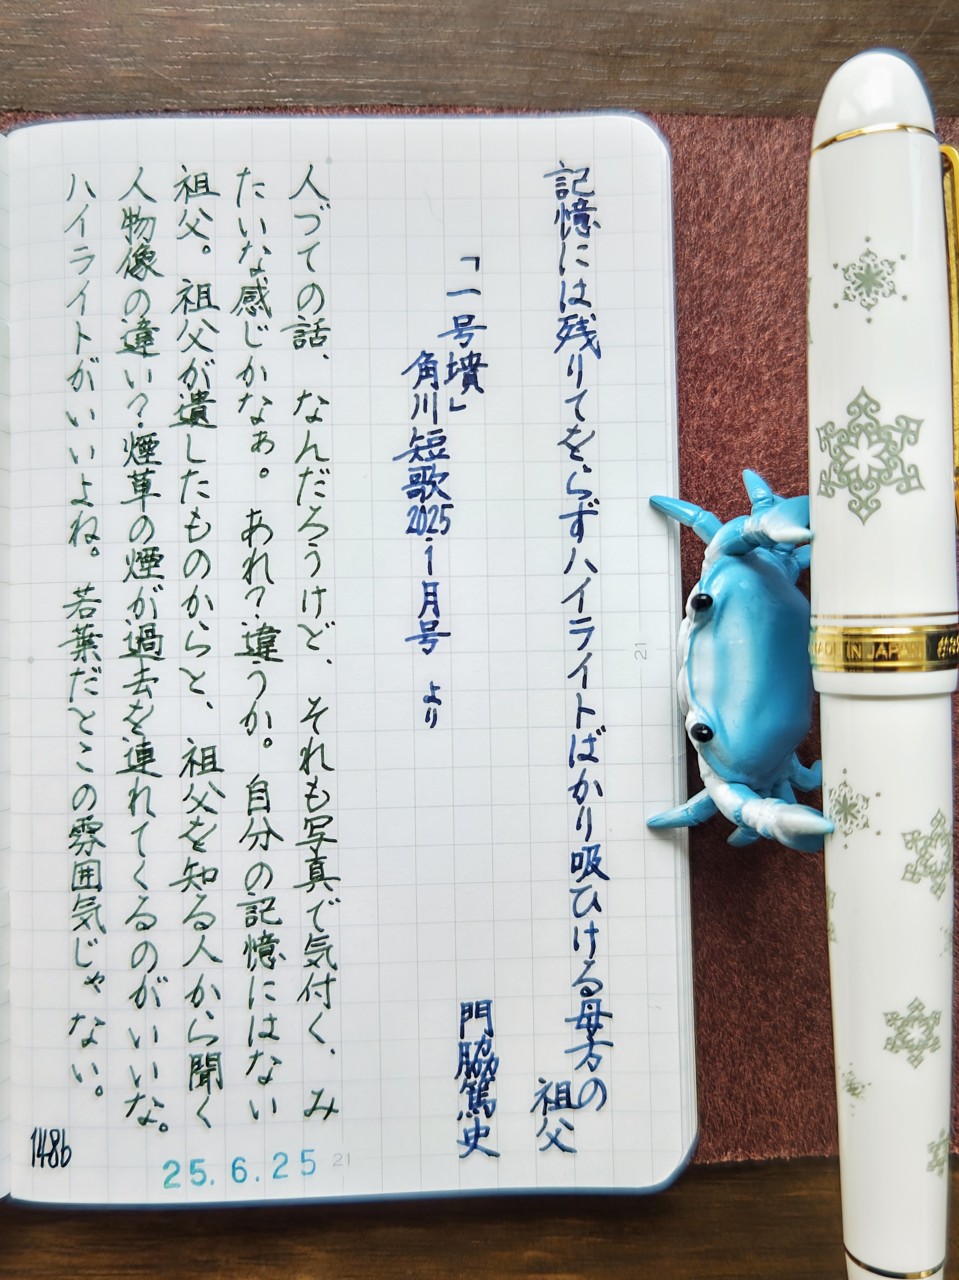 記憶には残りてをらずハイライトばかり吸ひける母方の
祖父
「一号墳」
角川短歌2025.1月号 より
門脇篤史
人づての話、なんだろうけど、それも写真で気付く、み
たいな感じかなぁ。あれ?違うか。自分の記憶にはない
祖父。祖父が遺したものからと、祖父を知る人から聞く
人物像の違い?煙草の煙が過去を連れてくるのがいいな。
ハイライトがいいよね。若葉だとこの雰囲気じゃない。
1486
25.6.25
21
21
MADE IN JAPAN